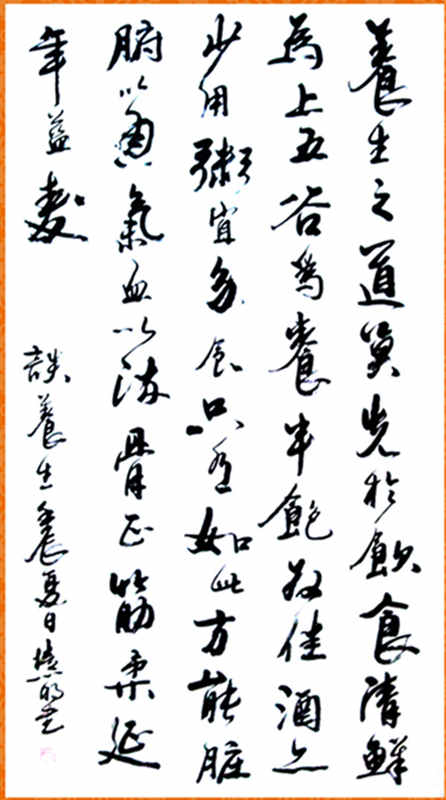 養生之道莫先於飲食清鮮
為上五谷為養半飽為佳酒
少用粥宜多食只有如此方能脏
腑以氣血以流骨正筋柔延
年益壽
談養生 辰夏日